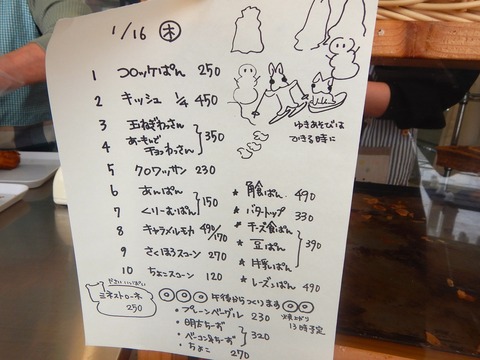 1/16 木
1 コロッケぱん 250
2 キッシュ 1/4 450
3 玉ねぎわっさん
4 チョコわっさん
350
5 クロワッサン 230
6 あんぱん
7 くりーむぱん
150
8 キャラメルモカ 490/170
9 さくほろスコーン 270
10 ちょこスコーン 120
ゆきあそびは
できる時に
* 角食ぱん 490
* バタートップ 330
* チーズ食ぱん
* 豆ぱん
* 牛乳ぱん
390
* レーズンぱん 490
やさいいっぱい
ミネストローネ
250
午後からつくります
焼上がり
13時予定
・プレーンベーグル 230
・明古ちーず
・ベーコンちーず
320
・ちょこ 270